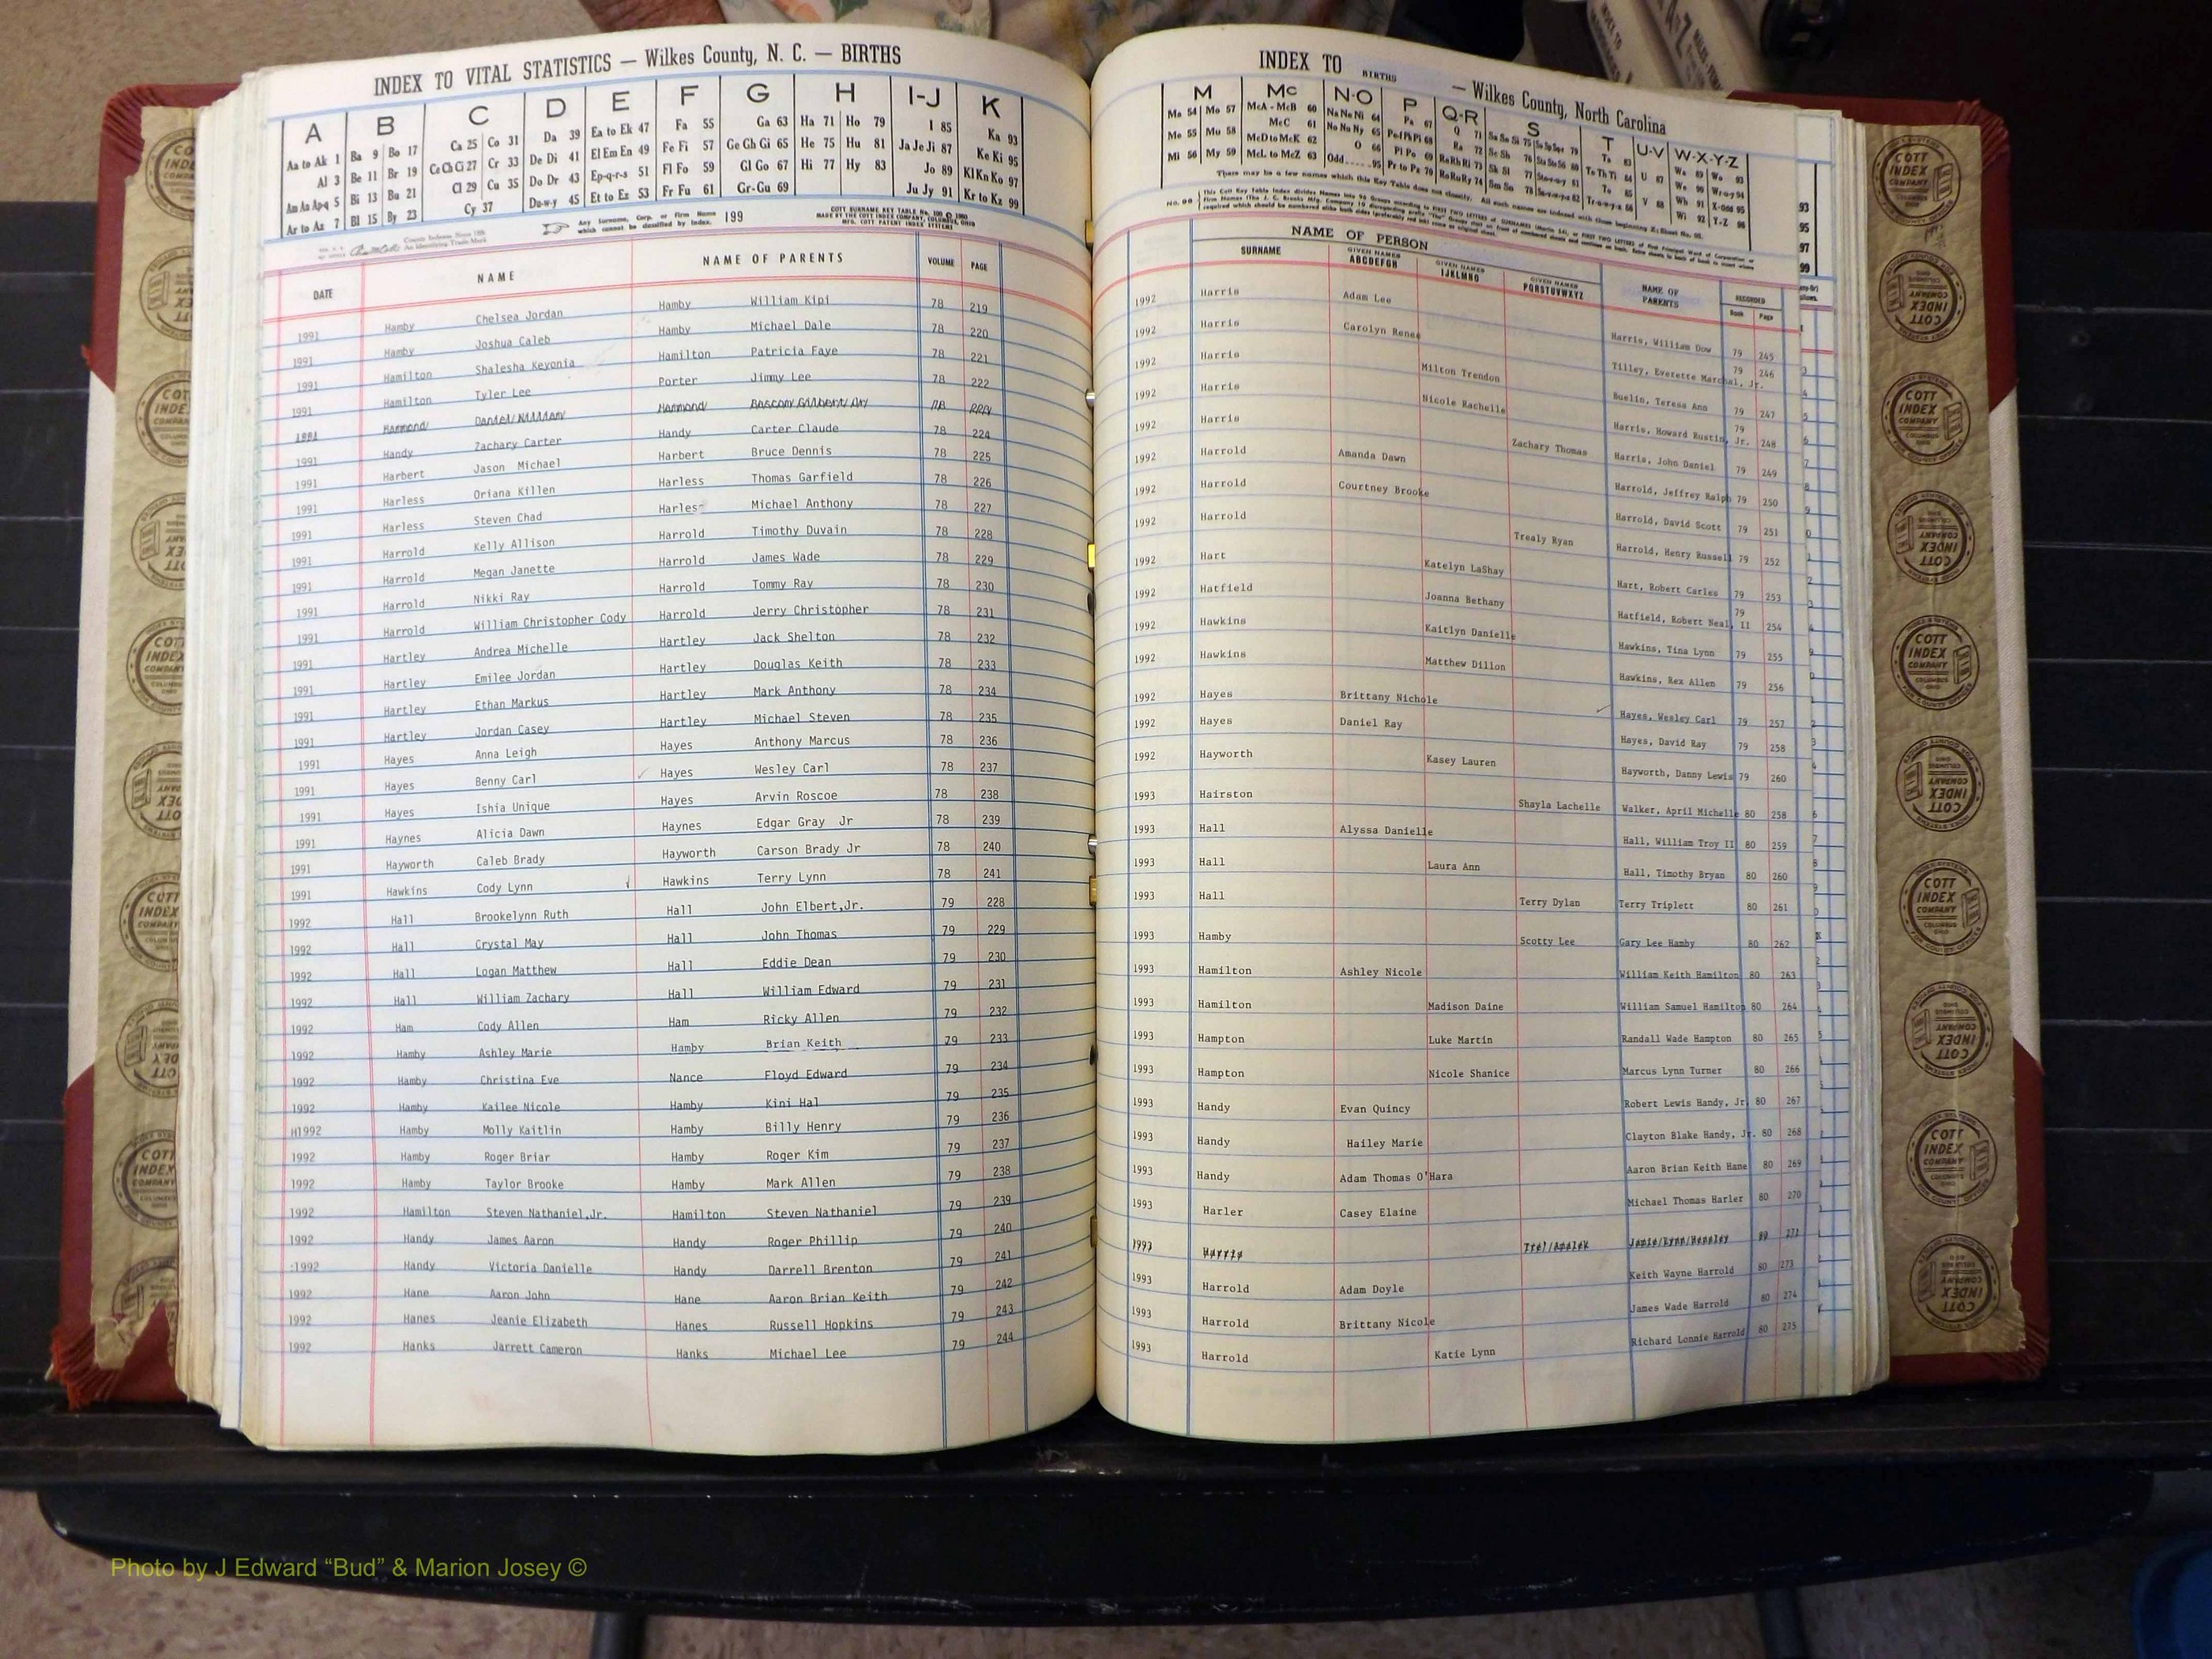 INDEX TO VITAL STATISTICS — Wilkes County, N. C. — BIRTHS
A B C D E F G H I-J K
Aa to Ak 1 Ba 9 Bo 17 Ca 25 Co 31 Da 39 Ea to Ek 47 Fa 55 Ga 63 Ha 71 Ho 79 I 85 Ka 93
Al 3 Be 11 Br 19 Ce Ch Ci 27 Cr 33 De Di 41 El Em En 49 Fe Fi 57 Ge Gh Gi 65 He 75 Hu 81 Ja Je Ji 87 Ke Ki 95
Am An Ap-q 5 Bi 13 Bu 21 Cl 29 Cu 35 Do Dr 43 Ep-q-r-s 51 Fl Fo 59 Gl Go 67 Hi 77 Hy 83 Jo 89 Kl Kn Ko 97
Ar to Az 7 Bl 15 By 23 Cy 37 Du-w-y 45 Et to Ez 53 Fr Fu 61 Gr-Gu 69 Ju Jy 91 Kr to Kz 99
Any Surname, Corp. or Firm Name which cannot be classified by Index. 199
COTT SURNAME KEY TABLE No. 100 © 1960
MADE BY THE COTT INDEX COMPANY, COLUMBUS, OHIO
MFG. COTT PATENT INDEX SYSTEMS
DATE NAME NAME OF PARENTS VOLUME PAGE
1991 Hamby Chelsea Jordan Hamby William Kipi 78 219
1991 Hamby Joshua Caleb Hamby Michael Dale 78 220
1991 Hamilton Shalesha Keyonia Hamilton Patricia Faye 78 221
1991 Hamilton Tyler Lee Porter Jimmy Lee 78 222
1991 Hammond Daniel Hammond
1991 Handy Zachary Carter Handy Carter Claude 78 224
1991 Harbert Jason Michael Harbert Bruce Dennis 78 225
1991 Harless Oriana Killen Harless Thomas Garfield 78 226
1991 Harless Steven Chad Harles Michael Anthony 78 227
1991 Harrold Kelly Allison Harrold Timothy Duvain 78 228
1991 Harrold Megan Janette Harrold James Wade 78 229
1991 Harrold Nikki Ray Harrold Tommy Ray 78 230
1991 Harrold William Christopher Cody Harrold Jerry Christopher 78 231
1991 Hartley Andrea Michelle Hartley Jack Shelton 78 232
1991 Hartley Emilee Jordan Hartley Douglas Keith 78 233
1991 Hartley Ethan Markus Hartley Mark Anthony 78 234
1991 Hartley Jordan Casey Hartley Michael Steven 78 235
1991 Hayes Anna Leigh Hayes Anthony Marcus 78 236
1991 Hayes Benny Carl Hayes Wesley Carl 78 237
1991 Hayes Ishia Unique Hayes Arvin Roscoe 78 238
1991 Haynes Alicia Dawn Haynes Edgar Gray Jr 78 239
1991 Hayworth Caleb Brady Hayworth Carson Brady Jr 78 240
1991 Hawkins Cody Lynn Hawkins Terry Lynn 78 241
1992 Hall Brookelynn Ruth Hall John Elbert,Jr. 79 228
1992 Hall Crystal May Hall John Thomas 79 229
1992 Hall Logan Matthew Hall Eddie Dean 79 230
1992 Hall William Zachary Hall William Edward 79 231
1992 Ham Cody Allen Ham Ricky Allen 79 232
1992 Hamby Ashley Marie Hamby Brian Keith 79 233
1992 Hamby Christina Eve Nance Floyd Edward 79 234
1992 Hamby Kailee Nicole Hamby Kini Hal 79 235
H1992 Hamby Molly Kaitlin Hamby Billy Henry 79 236
1992 Hamby Roger Briar Hamby Roger Kim 79 237
1992 Hamby Taylor Brooke Hamby Mark Allen 79 238
1992 Hamilton Steven Nathaniel,Jr. Hamilton Steven Nathaniel 79 239
1992 Handy James Aaron Handy Roger Phillip 79 240
:1992 Handy Victoria Danielle Handy Darrell Brenton 79 241
1992 Hane Aaron John Hane Aaron Brian Keith 79 242
1992 Hanes Jeanie Elizabeth Hanes Russell Hopkins 79 243
1992 Hanks Jarrett Cameron Hanks Michael Lee 79 244
INDEX TO BIRTHS — Wilkes County, North Carolina
M Mc N-O P Q-R S T U-V W-X-Y-Z
There may be a few names which this Key Table does not classify. All such names are indexed with those beginning X; Sheet No. 95.
NAME OF PERSON
SURNAME GIVEN NAMES ABCDEFGH GIVEN NAMES IJKLMNO GIVEN NAMES PQRSTUVWXYZ NAME OF PARENTS RECORDED Book Page
1992 Harris Adam Lee Harris, William Dow 79 245
1992 Harris Carolyn Renee Tilley, Everette Marchal, Jr. 79 246
1992 Harris Milton Trendon Buelin, Teresa Ann 79 247
1992 Harris Nicole Rachelle Harris, Howard Rustin, Jr. 79 248
1992 Harris Zachary Thomas Harris, John Daniel 79 249
1992 Harrold Amanda Dawn Harrold, Jeffrey Ralph 79 250
1992 Harrold Courtney Brooke Harrold, David Scott 79 251
1992 Harrold Trealy Ryan Harrold, Henry Russell 79 252
1992 Hart Katelyn LaShay Hart, Robert Carles 79 253
1992 Hatfield Joanna Bethany Hatfield, Robert Neal, II 79 254
1992 Hawkins Kaitlyn Danielle Hawkins, Tina Lynn 79 255
1992 Hawkins Matthew Dillon Hawkins, Rex Allen 79 256
1992 Hayes Brittany Nichole Hayes, Wesley Carl 79 257
1992 Hayes Daniel Ray Hayes, David Ray 79 258
1992 Hayworth Kasey Lauren Hayworth, Danny Lewis 79 260
1993 Hairston Shayla Lachelle Walker, April Michelle 80 258
1993 Hall Alyssa Danielle Hall, William Troy II 80 259
1993 Hall Laura Ann Hall, Timothy Bryan 80 260
1993 Hall Terry Dylan Terry Triplett 80 261
1993 Hamby Scotty Lee Gary Lee Hamby 80 262
1993 Hamilton Ashley Nicole William Keith Hamilton 80 263
1993 Hamilton Madison Daine William Samuel Hamilton 80 264
1993 Hampton Luke Martin Randall Wade Hampton 80 265
1993 Hampton Nicole Shanice Marcus Lynn Turner 80 266
1993 Handy Evan Quincy Robert Lewis Handy, Jr 80 267
1993 Handy Hailey Marie Clayton Blake Handy, Jr. 80 268
1993 Handy Adam Thomas O'Hara Aaron Brian Keith Hane 80 269
1993 Harler Casey Elaine Michael Thomas Harler 80 270
1993 Harris
1993 Harrold Adam Doyle Keith Wayne Harrold 80 273
1993 Harrold Brittany Nicole James Wade Harrold 80 274
1993 Harrold Katie Lynn Richard Lonnie Harrold 80 275
COTT INDEX COMPANY
Photo by J Edward “Bud” & Marion Josey ©